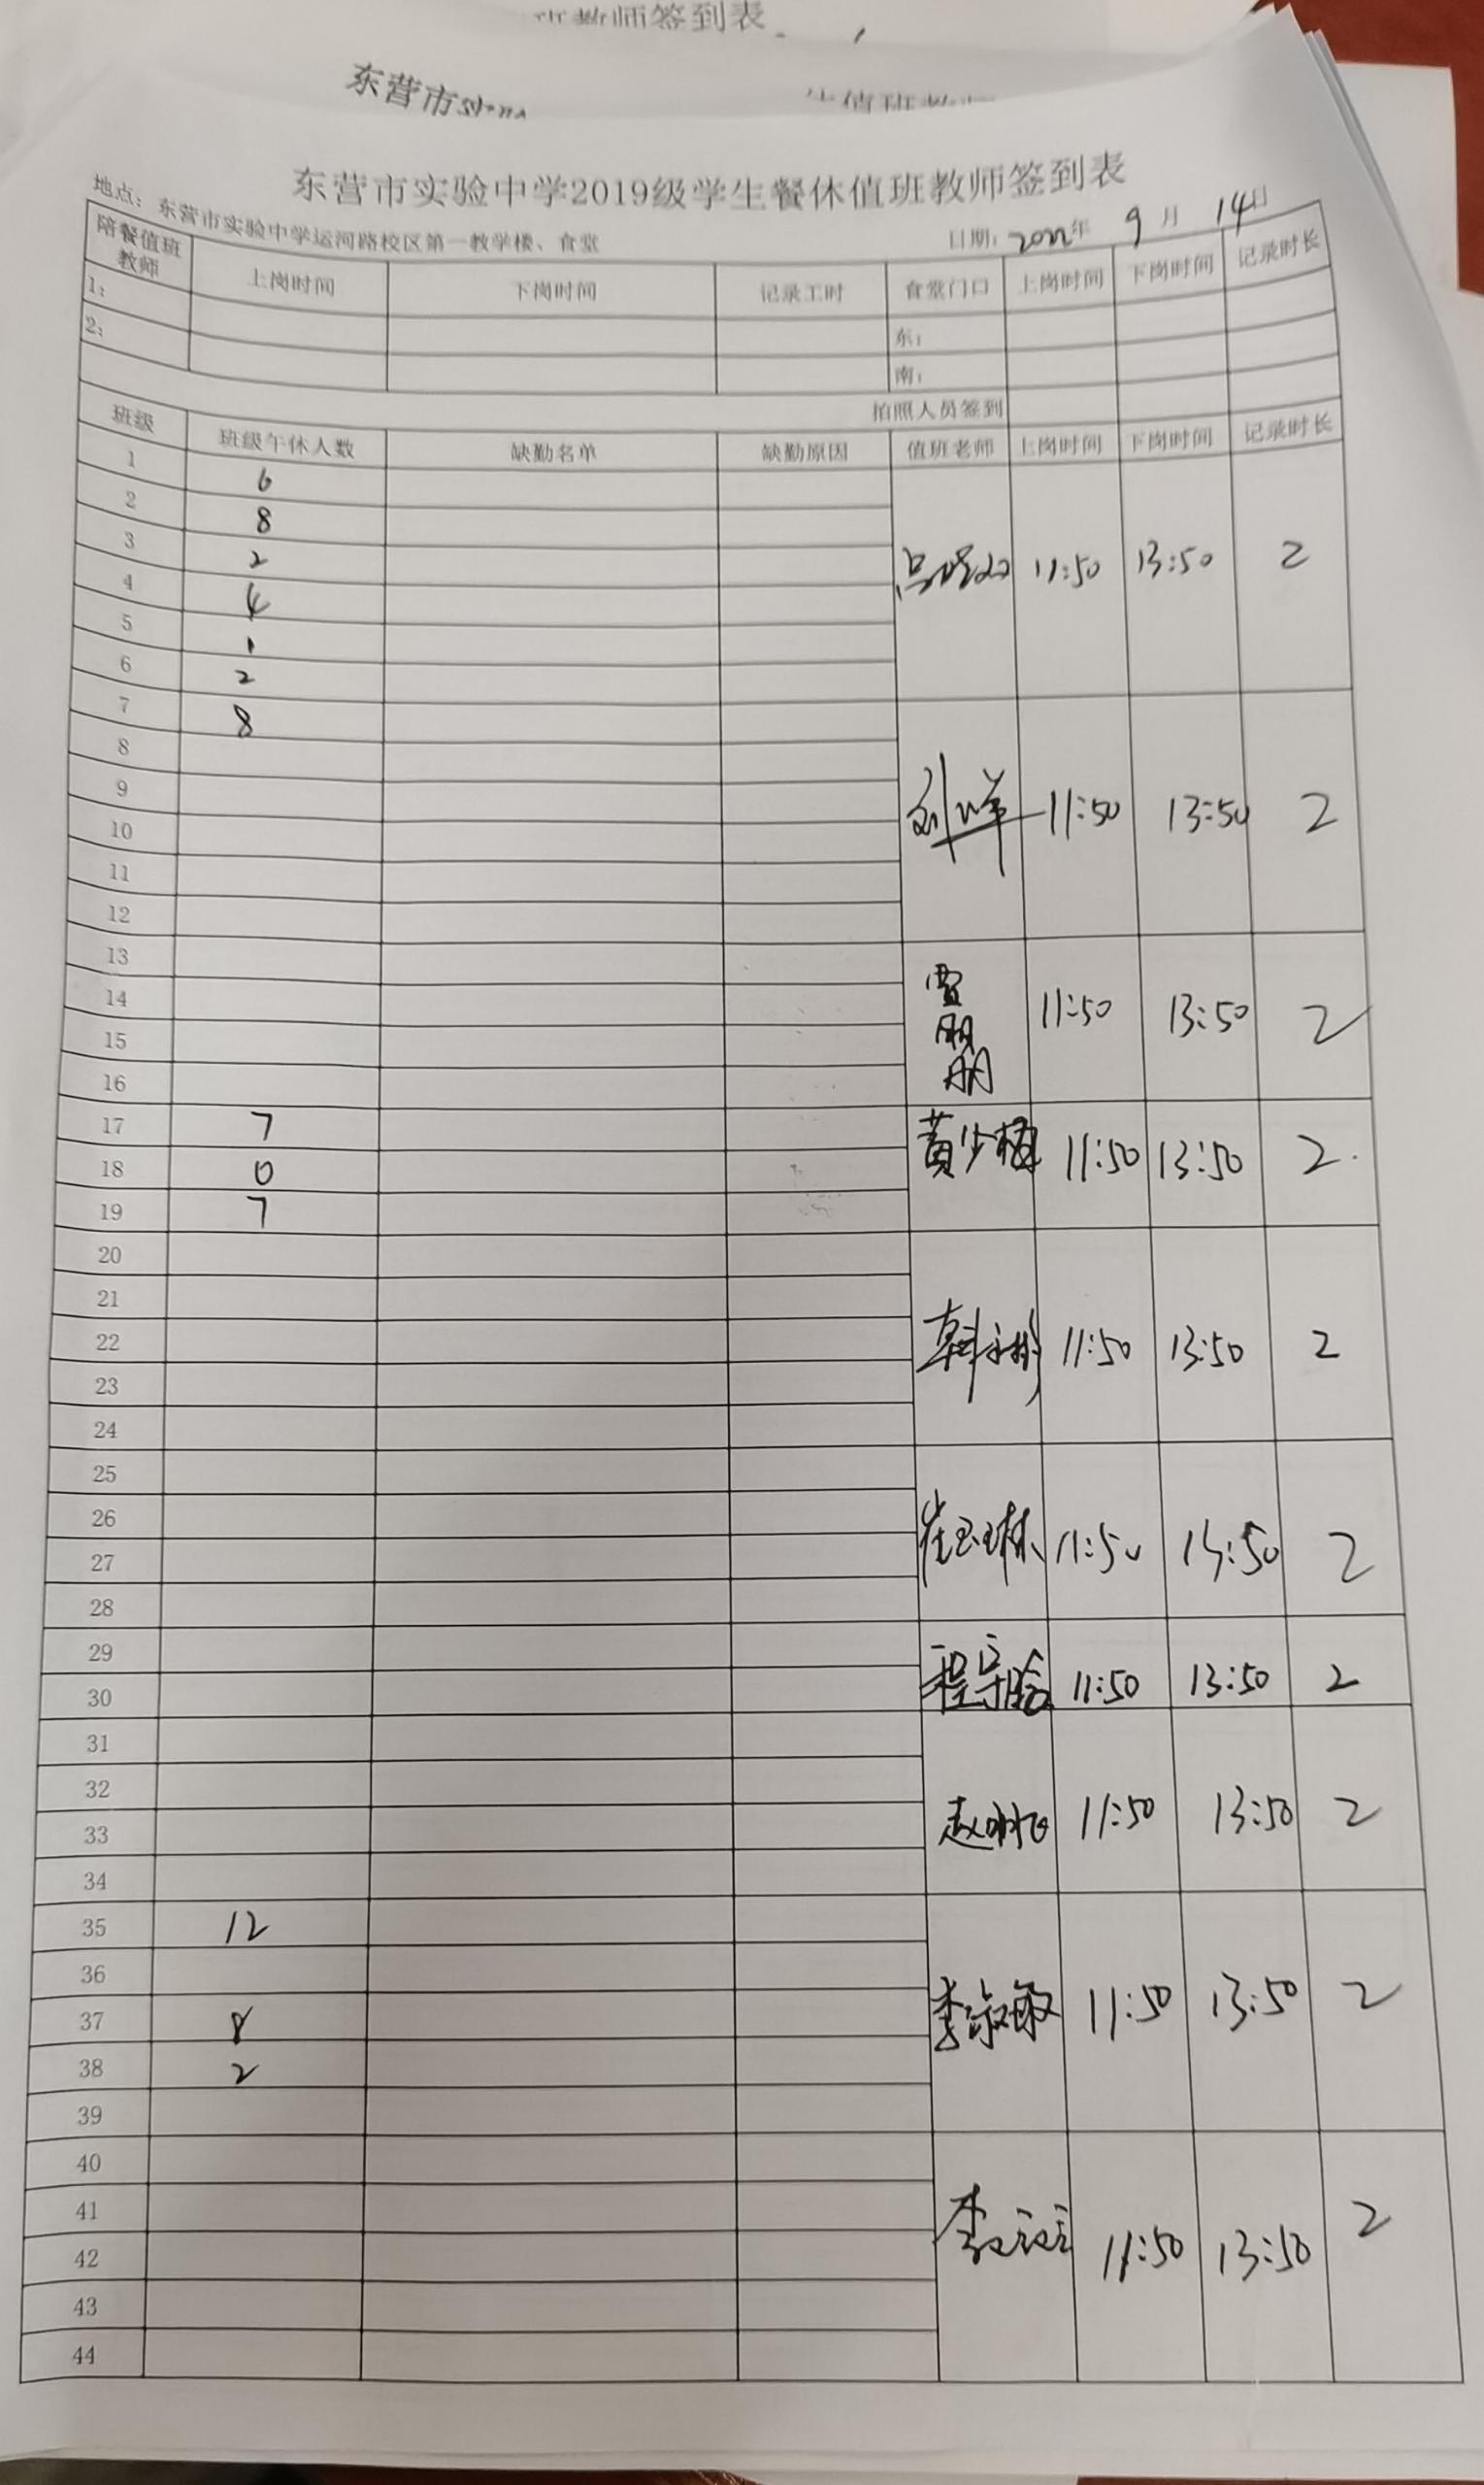 教师签到表
东营市
东营市实验中学2019级学生餐休值班教师签到表
地点：东营市实验中学运河路校区第一教学楼、食堂 日期：2022年 9 月 14日
陪餐值班教师 上岗时间 下岗时间 记录工时 食堂门口 上岗时间 下岗时间 记录时长
1： 东：
2： 南：
拍照人员签到
班级 班级午休人数 缺勤名单 缺勤原因 值班老师 上岗时间 下岗时间 记录时长
1 6
2 8
3 2
4 4 11:50 13:50 2
5 1
6 2
7 8
8
9
10 刘洋 11:50 13:50 2
11
12
13
14 贾朋朋 11:50 13:50 2
15
16
17 7
18 0 黄少梅 11:50 13:50 2
19 7
20
21
22 韩 11:50 13:50 2
23
24
25
26 崔玉林 11:50 13:50 2
27
28
29
30 程 11:50 13:50 2
31
32
33 赵 11:50 13:50 2
34
35 12
36
37 8 李淑敏 11:50 13:50 2
38 2
39
40
41
42 李 11:50 13:50 2
43
44